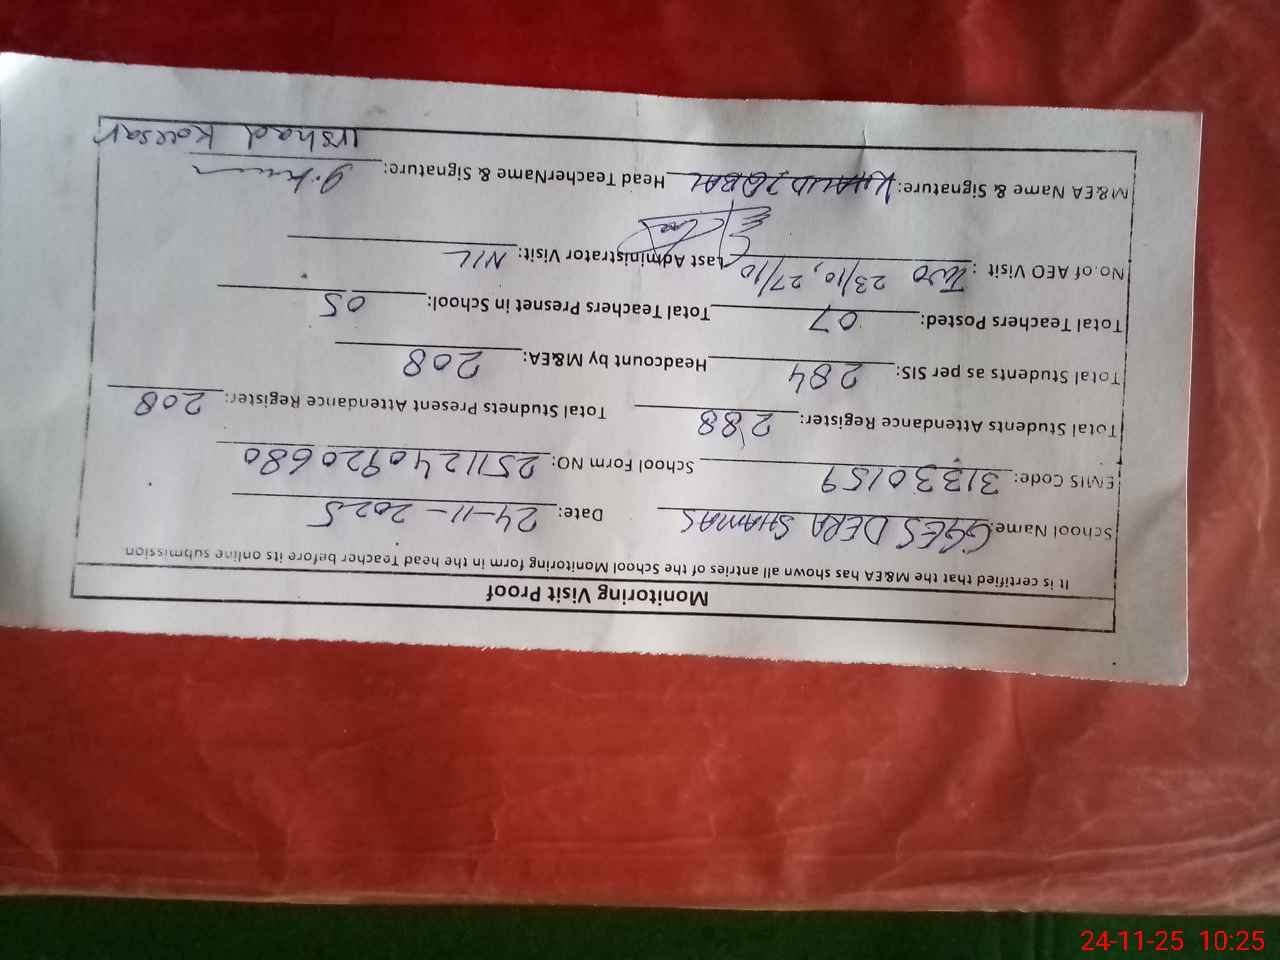 Monitoring Visit Proof
It is certified that the M&EA has shown all antries of the School Monitoring form in the head Teacher before its online submission
School Name: GGES DERA SHAMAS Date: 24-11-2025
EMIS Code: 31330159 School Form NO: 2511240920680
Total Students Attendance Register: 288 Total Studnets Present Attendance Register: 208
Total Students as per SIS: 284 Headcount by M&EA: 208
Total Teachers Posted: 07 Total Teachers Presnet in School: 05
No.of AEO Visit : Two 23/10, 27/10 Last Administrator Visit: NIL
M&EA Name & Signature: KHALID IQBAL Head TeacherName & Signature:
Irshad Kousar
24-11-25 10:25